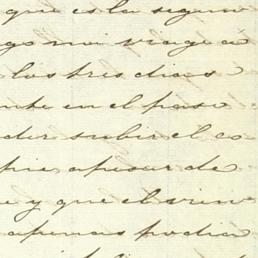 que es la segun
go mi viage a
los tres dias
nte en el pas
der subir el co
pie apesar de
e y que el vien
apenas podia